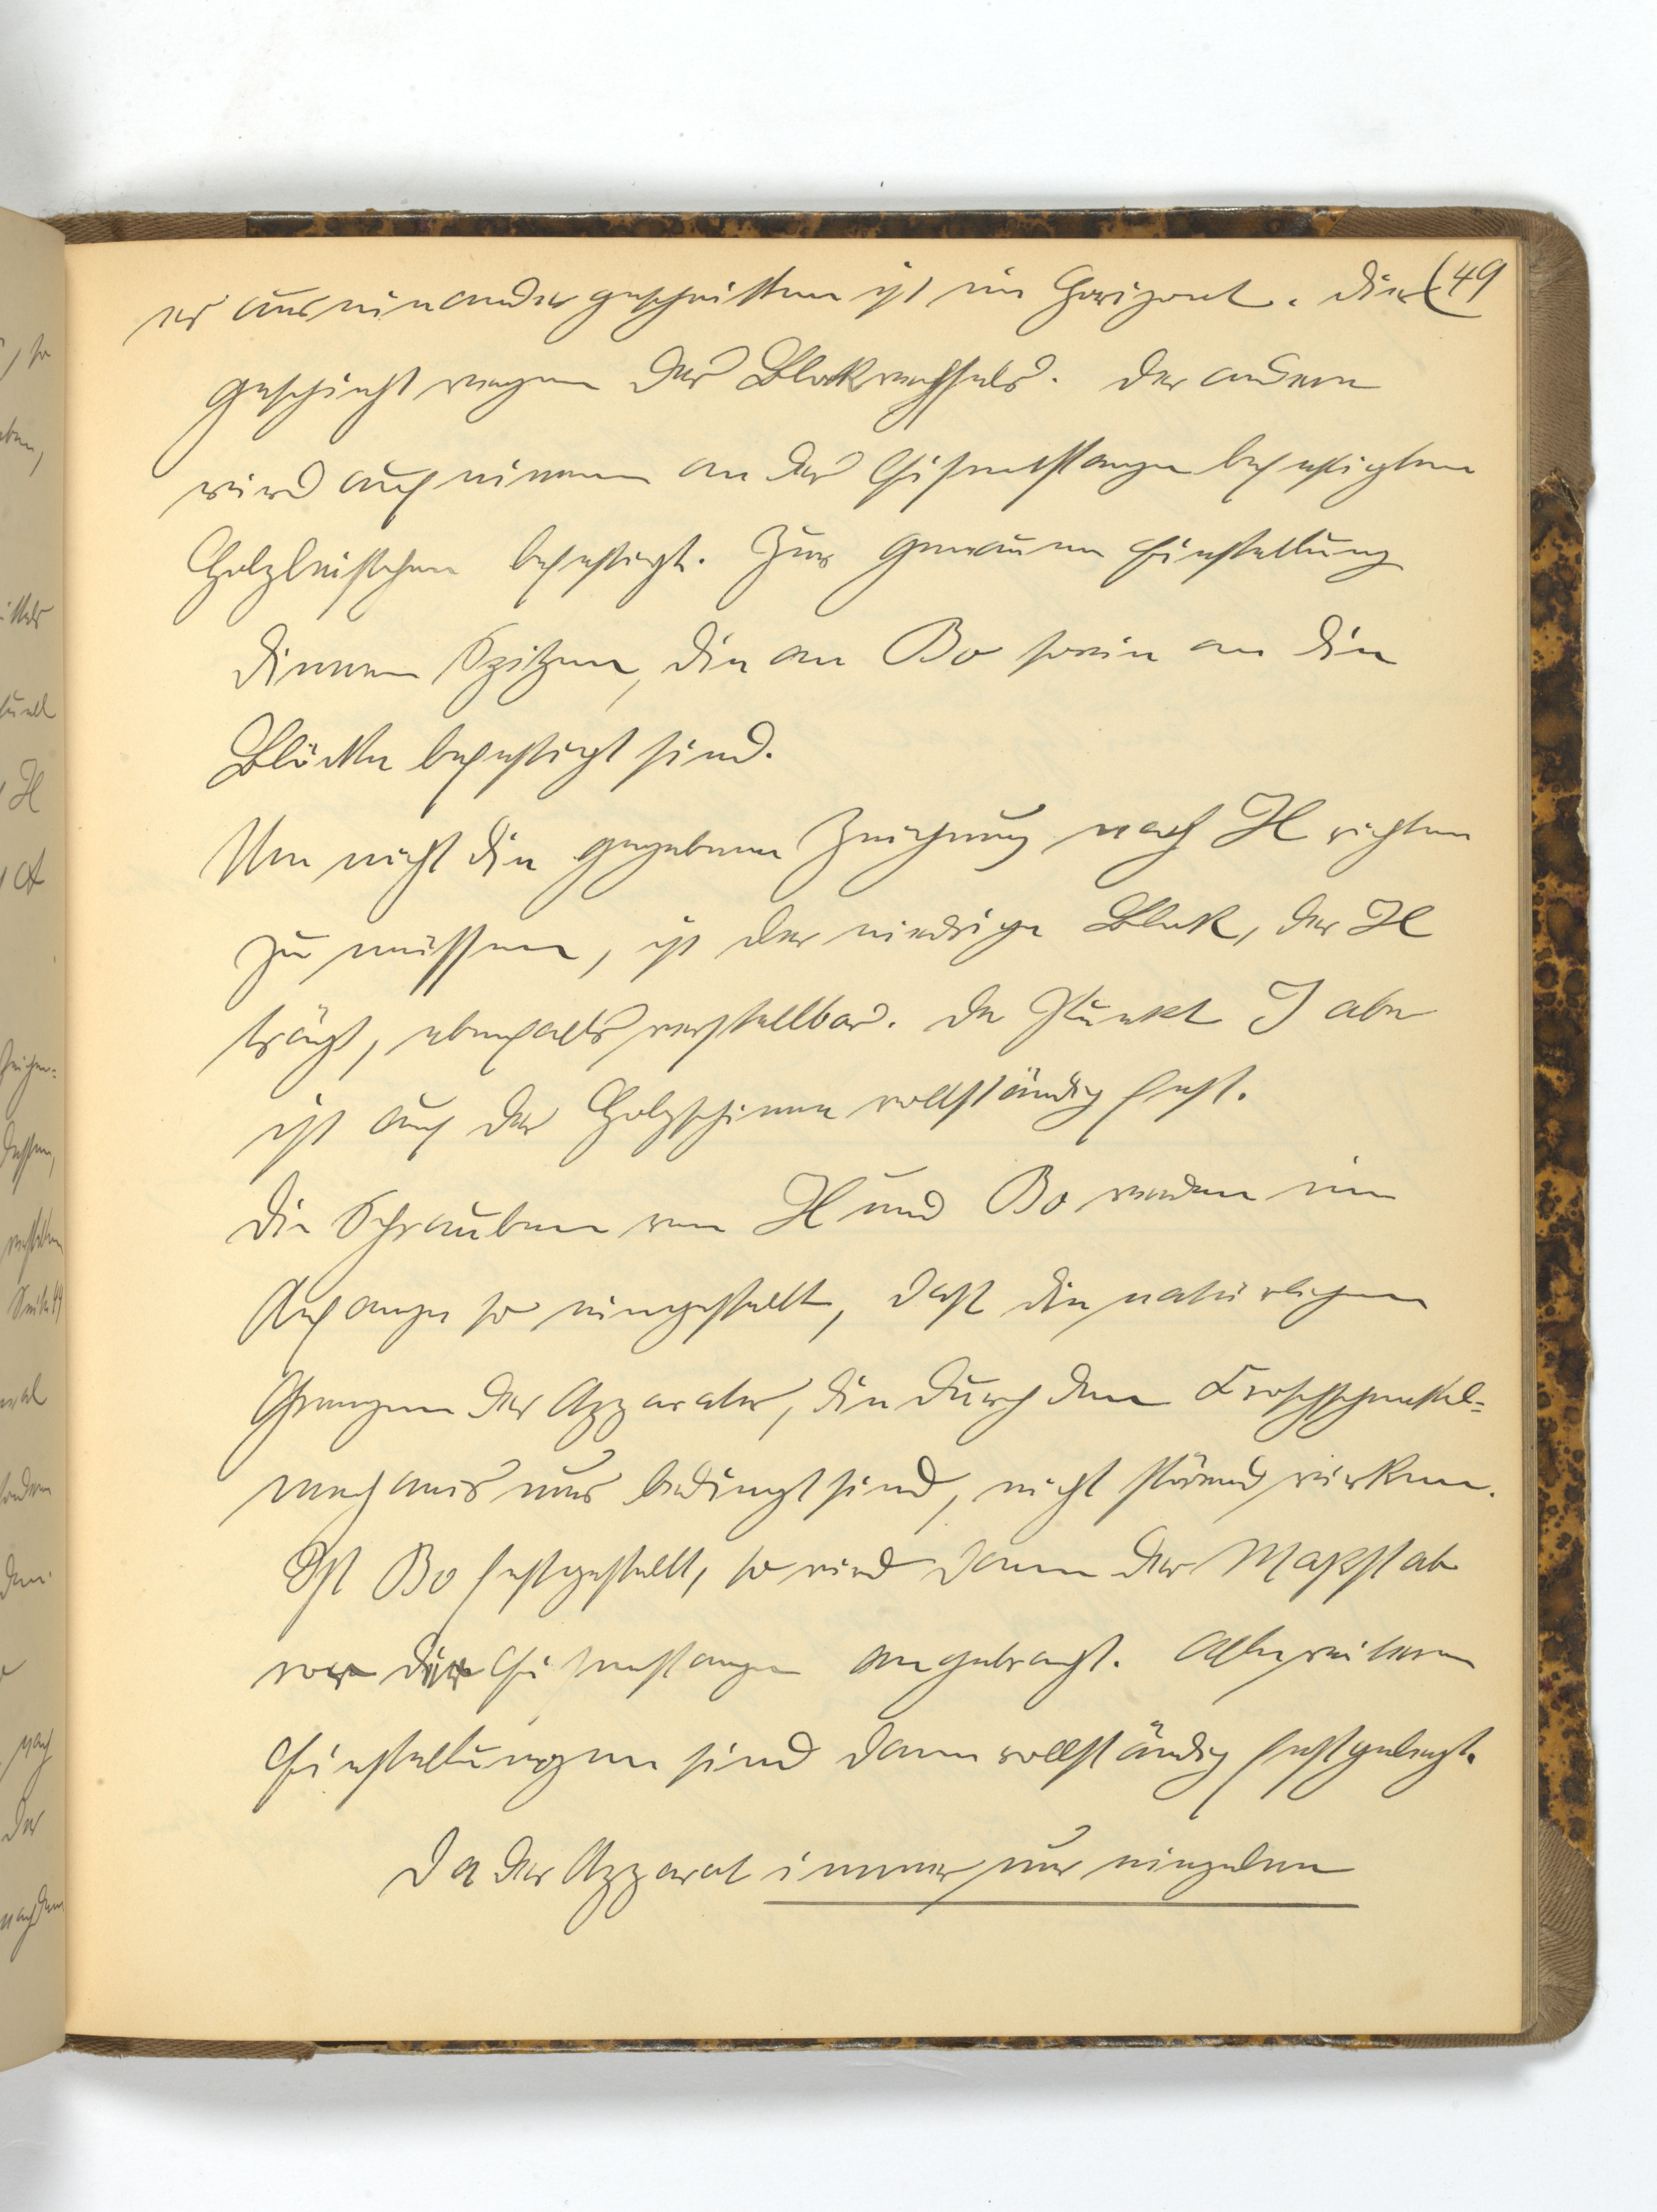 er auseinandergeschnitten ist im Horizont. Dies (49
geschieht wegen des Blockwechsels. Der andere
wird auf einem an der Eisenstange befestigten
Holzleistchen befestigt. Zur genauen Einstellung
dienen Spitzen, die an Bo sowie an die
Blöcke befestigt sind.
Um nicht die gegebene Zeichnung nach H richten
zu müssen, ist der niedrige Block, der H
trägt, ebenfalls verstellbar. Der Punkt J aber
ist auf der Holzschiene vollständig fest.
Die Schrauben von H und Bo werden im
Anfange so eingestellt, dass die natürlichen
Grenzen des Apparates, die durch den Froschschenkel-
mechanismus bedingt sind, nicht störend wirken.
Ist Bo festgestellt, so wird dann der Massstab
vor die Eisenstange angebracht. Alle weiteren
Einstellungen sind dann vollständig festgelegt.
Da der Apparat immer nur einzelne